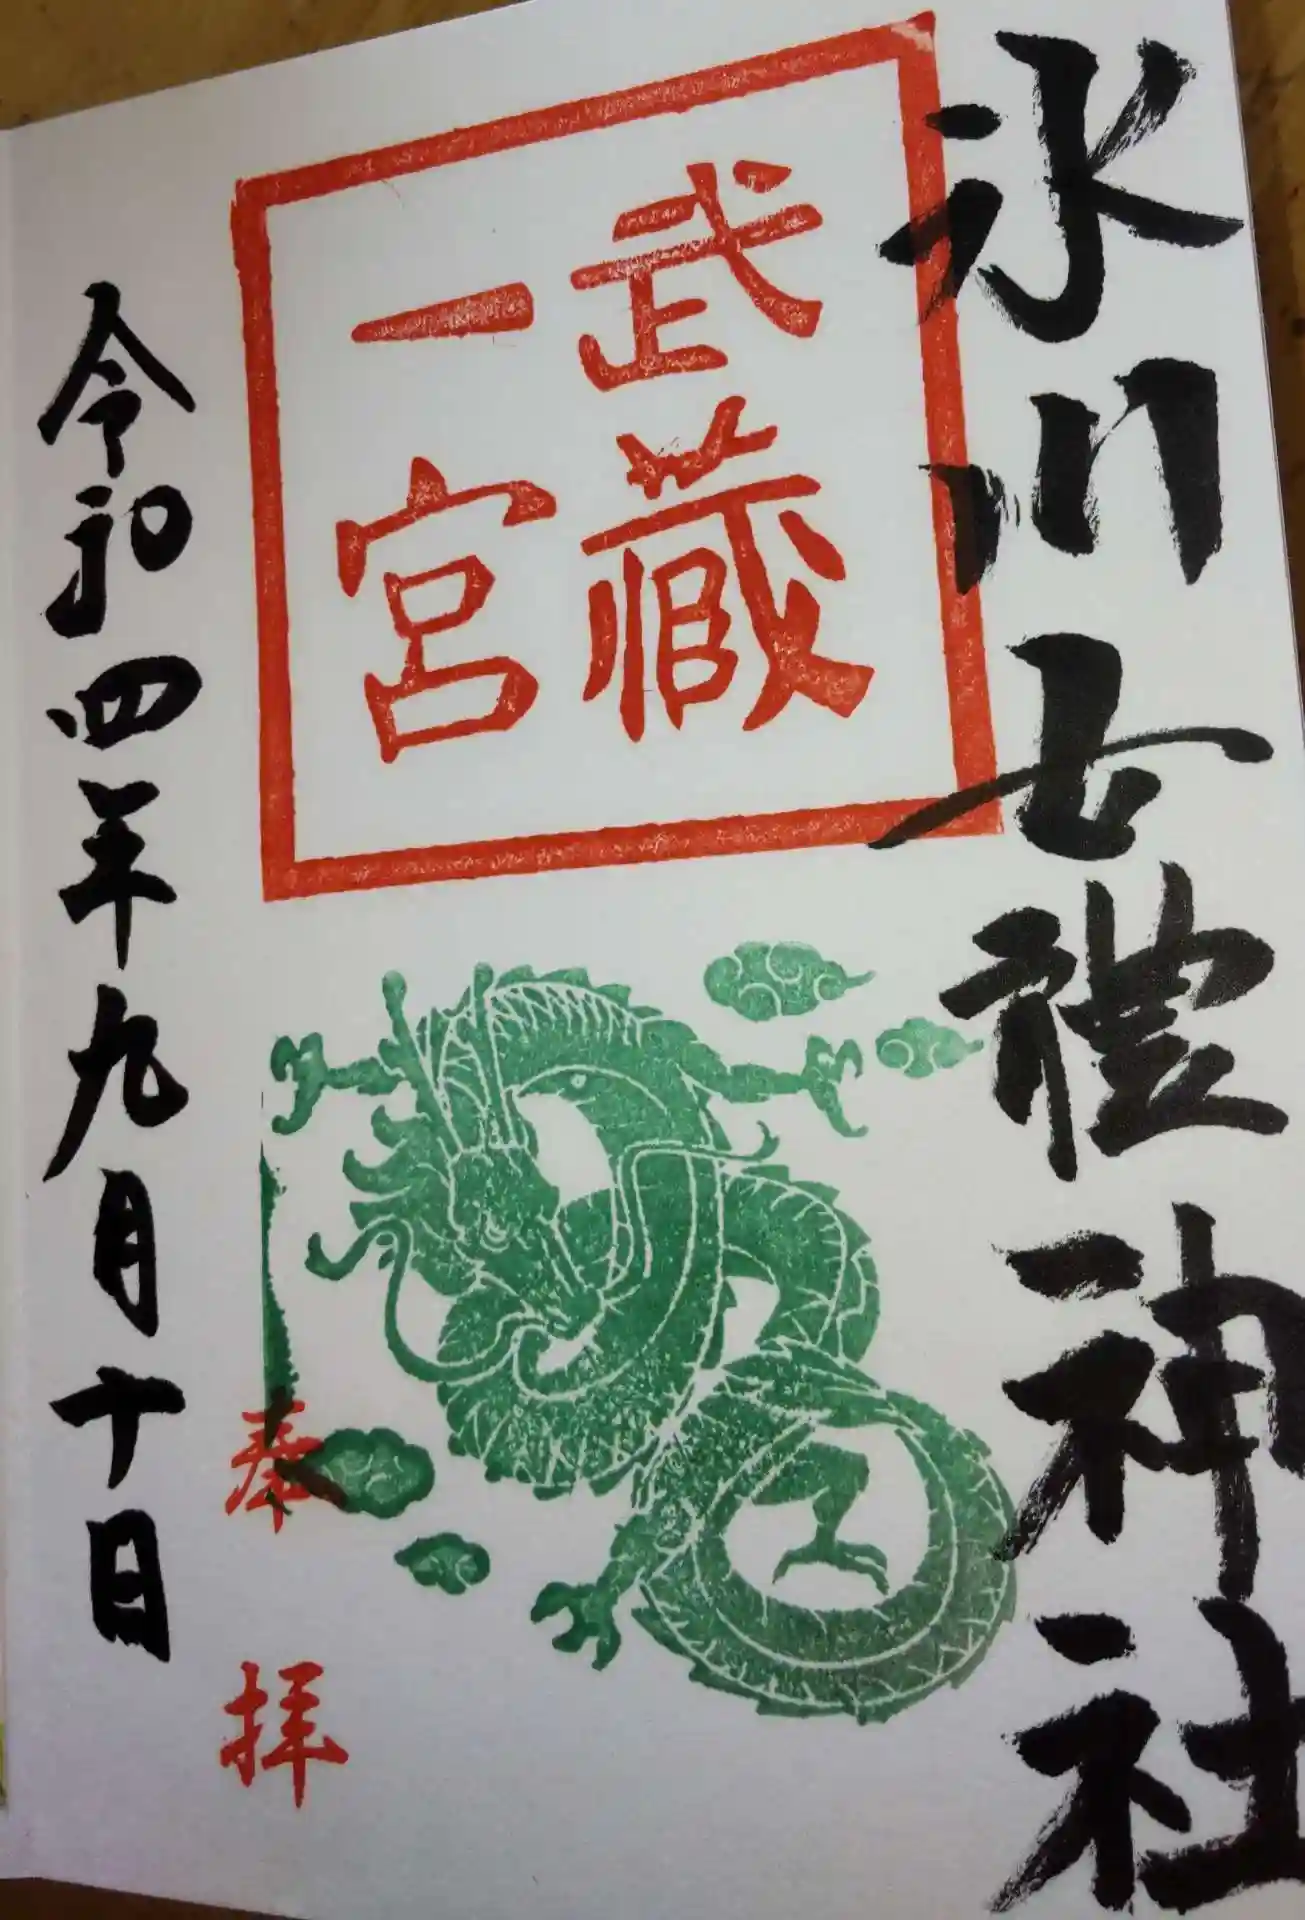 氷川女體神社
武藏
一宮
奉拝
令和四年九月十日